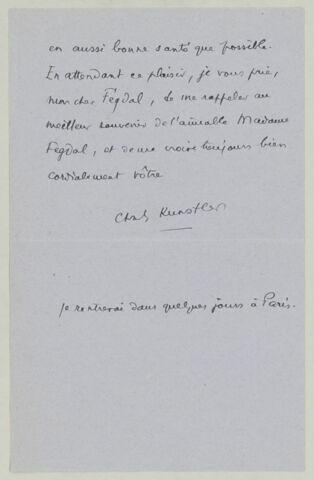 en aussi bonne santé que possible.
En attendant ce plaisir, je vous prie,
mon cher Fegdal, de me rappeler au
meilleur souvenir de l'aimable Madame
Fegdal, et de me croire toujours bien
cordialement vôtre
Charles Kunstler
je rentrerai dans quelques jours à Paris.